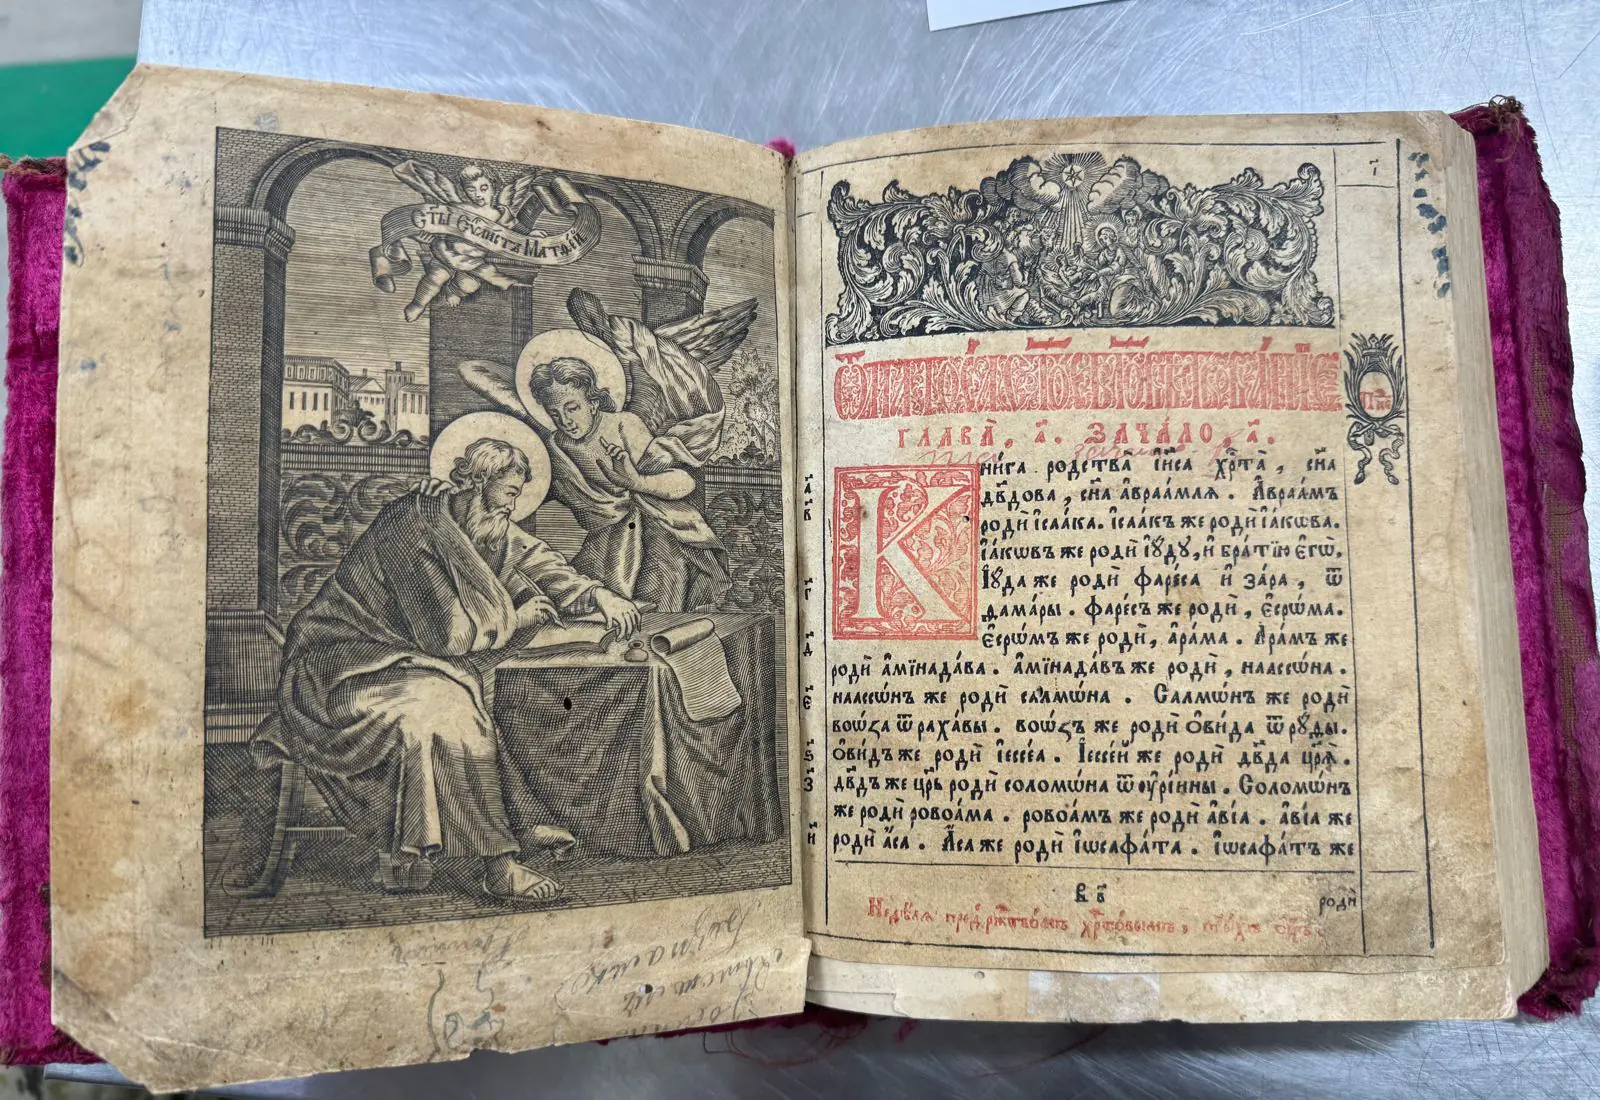 С҃ТЫ Є҃УЛИСТЪ МАТѲЕЙ
Ѿ МАТѲЕА С҃ТОЕ БЛ҃ГОВѢСТВОВАНІЕ
ГЛАВА̀, а҃. ЗАЧА́ЛО, а҃.
Кни́га родства̀ і҆и҃са хр҃та̀, сн҃а
дв҃дова, сн҃а а҆враа́млѧ. А҆враа́мъ
родѝ і҆саа́ка. і҆саа́къ же родѝ і҆а́кѡва.
і҆а́кѡвъ же родѝ і҆ꙋ́дꙋ, и҆ бра́тїю є҆гѡ̀.
І҆ꙋ́да же родѝ фаре́са и҆ за́ра, ѿ
ѳама́ры. фаре́съ же родѝ, є҆срѡ́ма.
є҆срѡ́мъ же родѝ, а҆ра́ма. А҆ра́мъ же
родѝ а҆мїнада́ва. а҆мїнада́въ же родѝ, наассѡ́на.
наассѡ́нъ же родѝ салмѡ́на. Салмѡ́нъ же родѝ
воѡ́за ѿ раха́вы. воѡ́зъ же родѝ ѡ҆ви́да ѿ рꙋ́ды.
ѡ҆ви́дъ же родѝ і҆ессе́а. І҆ессе́й же родѝ дв҃да цр҃ѧ̀.
дв҃дъ же цр҃ь родѝ соломѡ́на ѿ ᲂу҆рі́ины. Соломѡ́нъ
же родѝ ровоа́ма. ровоа́мъ же родѝ а҆ві́а. а҆ві́а же
родѝ а҆́са. А҆́са же родѝ і҆ѡсафа́та. і҆ѡсафа́тъ же
родѝ
Недѣлѧ пред̾ рж҃твомъ хр҃товымъ, ст҃ыхъ ѻц҃ъ.
а҃
в҃
г҃
д҃
є҃
ѕ҃
з҃
и҃